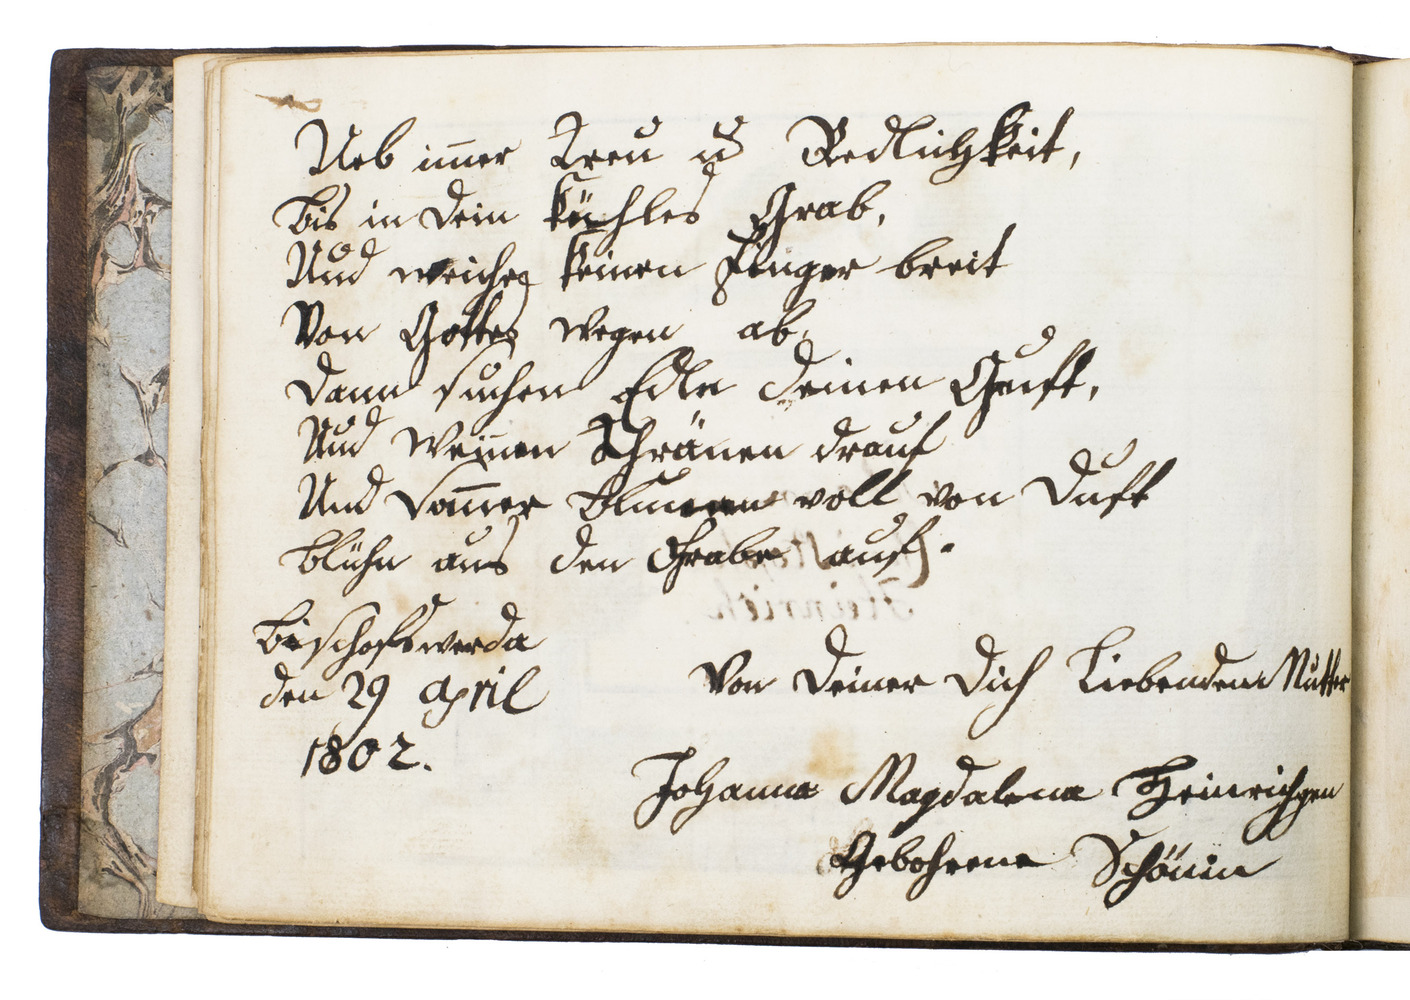 Ueb im̅er Treu u Redlichkeit,
bis in dein kühles Grab,
Und weiche keinen Finger breit
Von Gottes wegen ab,
Dann suchen Edle deinen Gruft,
Und weinen Thränen drauf
Und Som̅er Blumen voll von Duft
blühn aus den Grabe auf.
Bischofswerda
den 29 April
1802.
Von Deiner Dich Liebenden Mutter
Johanna Magdalena Heinrichgen
Gebohrene Schönin